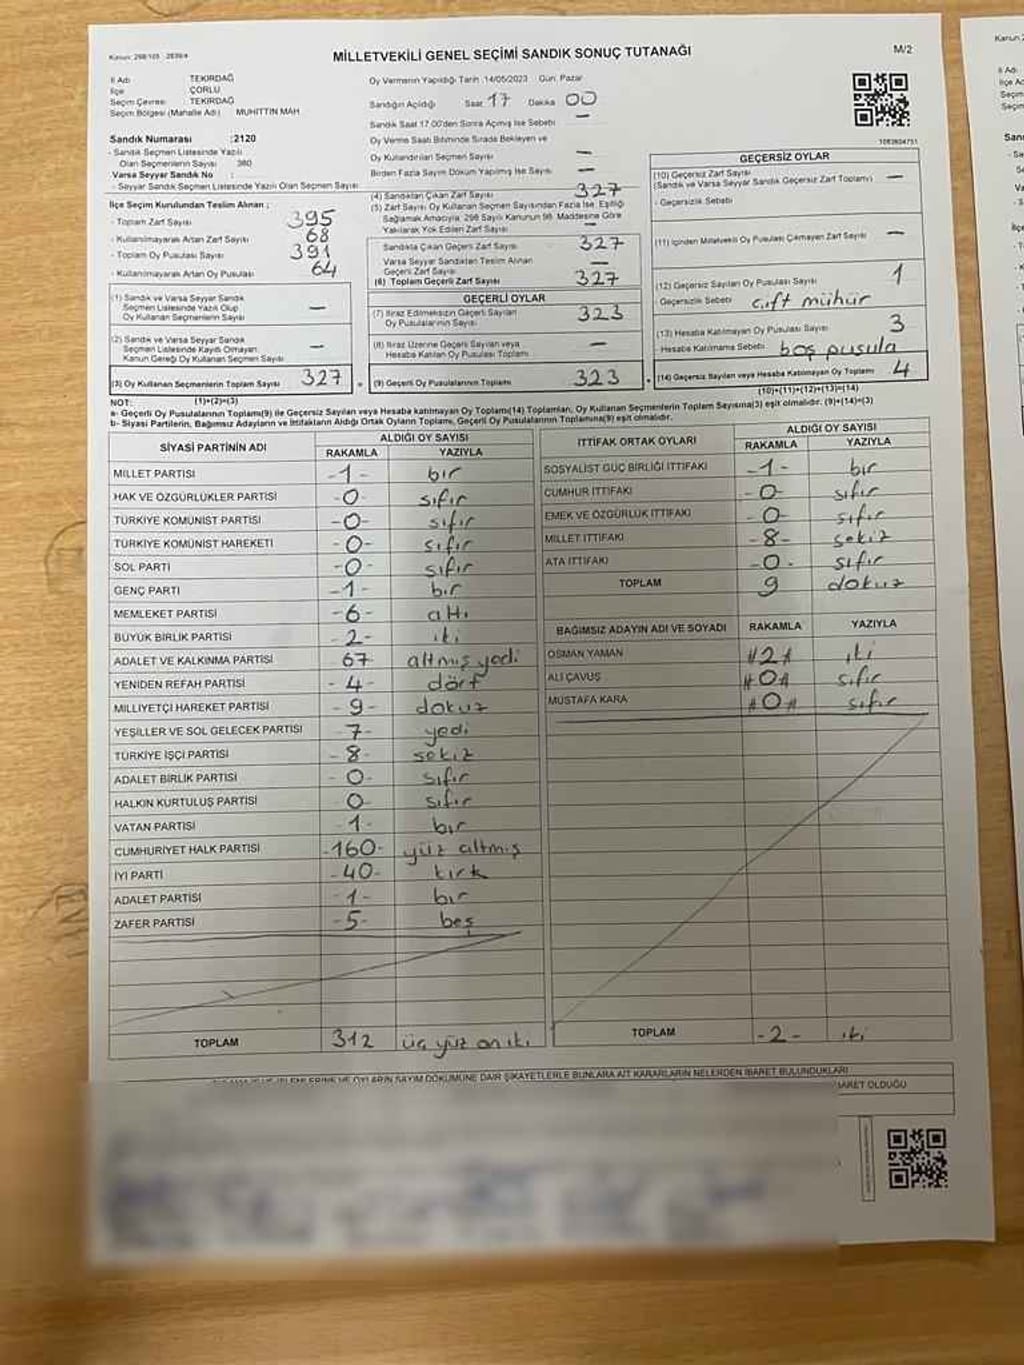 Kanun: 298/105 - 2839/4
MİLLETVEKİLİ GENEL SEÇİMİ SANDIK SONUÇ TUTANAĞI
M/2
İl Adı : TEKİRDAĞ
İlçe : ÇORLU
Seçim Çevresi : TEKİRDAĞ
Seçim Bölgesi (Mahalle Adı) : MUHİTTİN MAH
Sandık Numarası :2120
- Sandık Seçmen Listesinde Yazılı
Olan Seçmenlerin Sayısı : 380
Varsa Seyyar Sandık No :
- Seyyar Sandık Seçmen Listesinde Yazılı Olan Seçmen Sayısı
İlçe Seçim Kurulundan Teslim Alınan ;
- Toplam Zarf Sayısı 395
- Kullanılmayarak Artan Zarf Sayısı 68
- Toplam Oy Pusulası Sayısı 391
- Kullanılmayarak Artan Oy Pusulası 64
(1) Sandık ve Varsa Seyyar Sandık
Seçmen Listesinde Yazılı Olup
Oy Kullanan Seçmenlerin Sayısı —
(2) Sandık ve Varsa Seyyar Sandık
Seçmen Listesinde Kayıtlı Olmayan,
Kanun Gereği Oy Kullanan Seçmenlerin Sayısı —
(3) Oy Kullanan Seçmenlerin Toplam Sayısı 327
(1)+(2)=(3)
Oy Vermenin Yapıldığı Tarih :14/05/2023 Gün: Pazar
Sandığın Açıldığı Saat 17 Dakika 00
Sandık Saat 17.00'den Sonra Açılmış İse Sebebi —
Oy Verme Saati Bitiminde Sırada Bekleyen ve
Oy Kullandırılan Seçmen Sayısı —
Birden Fazla Sayım Döküm Yapılmış İse Sayısı —
(4) Sandıktan Çıkan Zarf Sayısı 327
(5) Zarf Sayısı Oy Kullanan Seçmen Sayısından Fazla İse, Eşitliği
Sağlamak Amacıyla, 298 Sayılı Kanunun 98. Maddesine Göre
Yakılarak Yok Edilen Zarf Sayısı —
Sandıkta Çıkan Geçerli Zarf Sayısı 327
Varsa Seyyar Sandıktan Teslim Alınan
Geçerli Zarf Sayısı —
(6) Toplam Geçerli Zarf Sayısı 327
GEÇERLİ OYLAR
(7) İtiraz Edilmeksizin Geçerli Sayılan
Oy Pusulalarının Sayısı 323
(8) İtiraz Üzerine Geçerli Sayılan veya
Hesaba Katılan Oy Pusulası Toplamı —
(9) Geçerli Oy Pusulalarının Toplamı 323
1083604751
GEÇERSİZ OYLAR
(10) Geçersiz Zarf Sayısı
(Sandık ve Varsa Seyyar Sandık Geçersiz Zarf Toplamı) —
- Geçersizlik Sebebi
(11) İçinden Milletvekili Oy Pusulası Çıkmayan Zarf Sayısı —
(12) Geçersiz Sayılan Oy Pusulası Sayısı 1
- Geçersizlik Sebebi çift mühür
(13) Hesaba Katılmayan Oy Pusulası Sayısı 3
- Hesaba Katılmama Sebebi boş pusula
(14) Geçersiz Sayılan veya Hesaba Katılmayan Oy Toplamı 4
(10)+(11)+(12)+(13)=(14)
NOT:
a- Geçerli Oy Pusulalarının Toplamı(9) ile Geçersiz Sayılan veya Hesaba katılmayan Oy Toplamı(14) Toplamları, Oy Kullanan Seçmenlerin Toplam Sayısına(3) eşit olmalıdır. (9)+(14)=(3)
b- Siyasi Partilerin, Bağımsız Adayların ve İttifakların Aldığı Ortak Oyların Toplamı, Geçerli Oy Pusulalarının Toplamına(9) eşit olmalıdır.
SİYASİ PARTİNİN ADI ALDIĞI OY SAYISI
RAKAMLA YAZIYLA
MİLLET PARTİSİ -1- bir
HAK VE ÖZGÜRLÜKLER PARTİSİ -0- sıfır
TÜRKİYE KOMÜNİST PARTİSİ -0- sıfır
TÜRKİYE KOMÜNİST HAREKETİ -0- sıfır
SOL PARTİ -0- sıfır
GENÇ PARTİ -1- bir
MEMLEKET PARTİSİ -6- altı
BÜYÜK BİRLİK PARTİSİ -2- iki
ADALET VE KALKINMA PARTİSİ 67 altmış yedi
YENİDEN REFAH PARTİSİ -4- dört
MİLLİYETÇİ HAREKET PARTİSİ -9- dokuz
YEŞİLLER VE SOL GELECEK PARTİSİ -7- yedi
TÜRKİYE İŞÇİ PARTİSİ -8- sekiz
ADALET BİRLİK PARTİSİ -0- sıfır
HALKIN KURTULUŞ PARTİSİ 0- sıfır
VATAN PARTİSİ -1- bir
CUMHURİYET HALK PARTİSİ -160- yüz altmış
İYİ PARTİ -40- kırk
ADALET PARTİSİ -1- bir
ZAFER PARTİSİ -5- beş
TOPLAM 312 üç yüz on iki
İTTİFAK ORTAK OYLARI ALDIĞI OY SAYISI
RAKAMLA YAZIYLA
SOSYALİST GÜÇ BİRLİĞİ İTTİFAKI -1- bir
CUMHUR İTTİFAKI -0- sıfır
EMEK VE ÖZGÜRLÜK İTTİFAKI -0- sıfır
MİLLET İTTİFAKI -8- sekiz
ATA İTTİFAKI -0- sıfır
TOPLAM 9 dokuz
BAĞIMSIZ ADAYIN ADI VE SOYADI RAKAMLA YAZIYLA
OSMAN YAMAN 2 iki
ALİ ÇAVUŞ 0 sıfır
MUSTAFA KARA 0 sıfır
TOPLAM -2- iki
OYLARIN SAYIM DÖKÜMÜNE DAİR ŞİKAYETLERLE BUNLARA AİT KARARLARIN NELERDEN İBARET BULUNDUKLARI
İBARET OLDUĞU